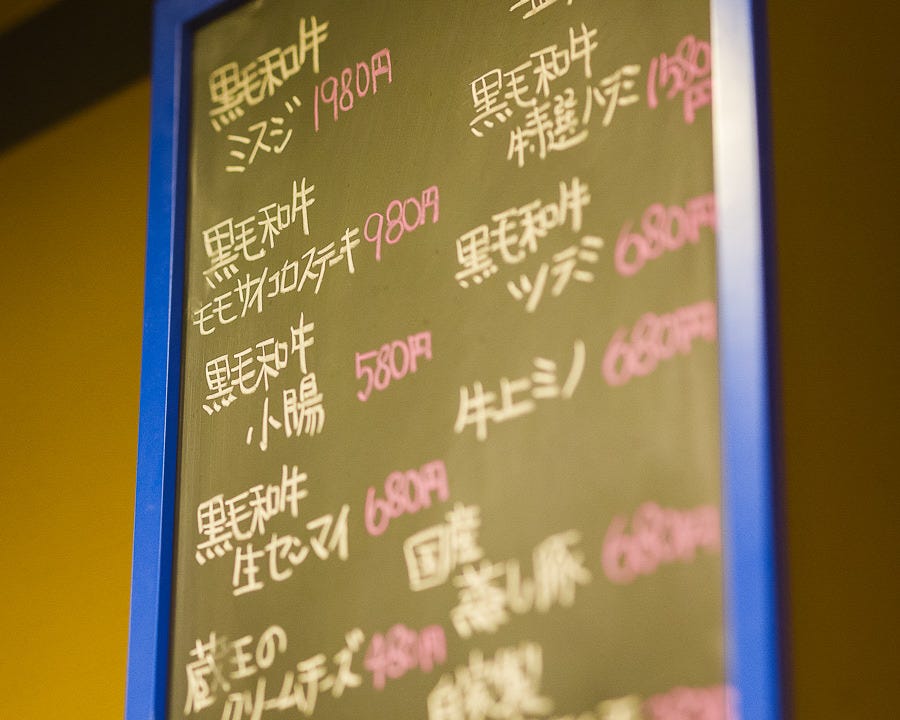 黒毛和牛
ミスジ 1980円
黒毛和牛
モモサイコロステーキ 980円
黒毛和牛
小腸 580円
黒毛和牛
生センマイ 680円
蔵王の
クリームチーズ 480円
黒毛和牛
特選ハラミ 1580
円
黒毛和牛
ツラミ 680円
牛上ミノ 680円
国産
蒸し豚 680円
自家製